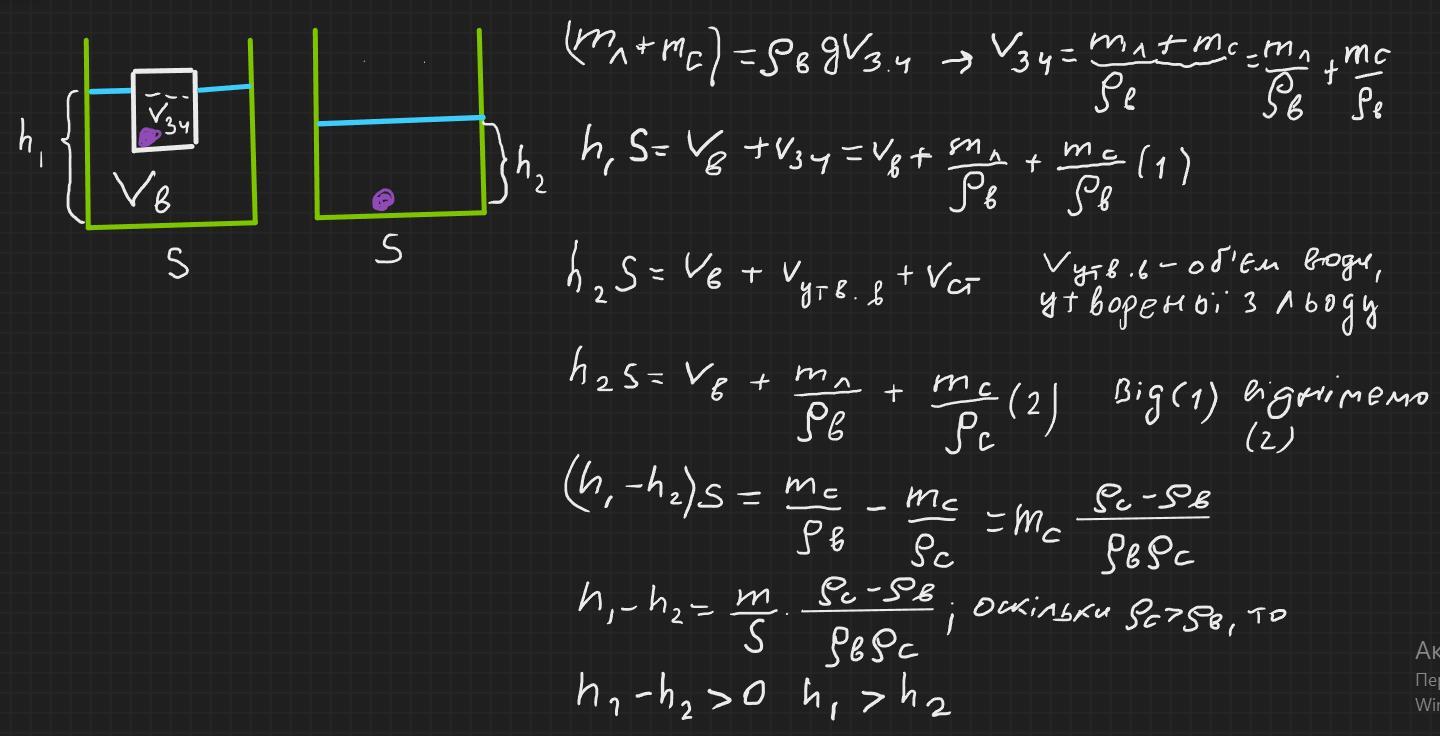 h₁
V₃ч
Vв
S
h₂
S
(mл + mс) = ρв g Vз.ч → Vзч = (mл + mс)/ρв = mл/ρв + mс/ρв
h₁ S = Vв + Vзч = Vв + mл/ρв + mс/ρв (1)
h₂ S = Vв + Vутв.в + Vст Vутв.в – об'єм води,
утвореної з льоду
h₂ S = Vв + mл/ρв + mс/ρс (2) Від (1) віднімемо
(2)
(h₁ – h₂) S = mс/ρв – mс/ρс = mс (ρс – ρв)/(ρвρс)
h₁ – h₂ = m/S · (ρс – ρв)/(ρвρс) ; оскільки ρс > ρв, то
h₁ – h₂ > 0 h₁ > h₂
Ак
Пер
Win